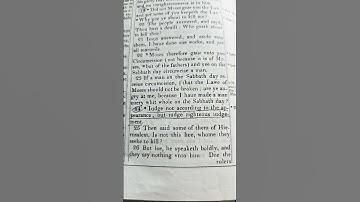 no unrighteousness is in him.
19 * Did not Moses giue you the Law
and yet none of you keepeth the Law?
* Why goe ye about to kill me?
20 The people answered, and sayd,
Thou hast a deuill: Who goeth about
to kill thee?
21 Iesus answered, and saide vnto
them, I haue done one worke, and yee
all marueile.
22 * Moses therefore gaue vnto you
Circumcision (not because it is of Moses,
* but of the fathers) and yee on the
Sabbath day circumcise a man.
23 If a man on the Sabbath day receiue
circumcision, that the Lawe of
Moses should not be broken; are ye angry
at me, because I haue made a man
euery whit whole on the Sabbath day?
24 * Iudge not according to the appearance,
but iudge righteous iudgement.
25 Then said some of them of Hierusalem,
Is not this hee, whome they
seeke to kill?
26 But loe, he speaketh boldly, and
they say nothing vnto him: Doe the
rulers